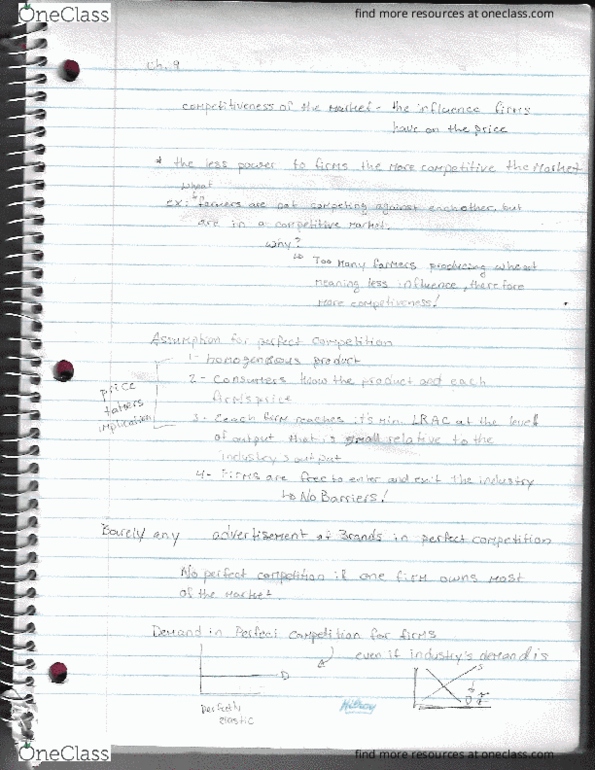 OneClass
find more resources at oneclass.com
Ch. 9
competitiveness of the market - the influence firms
have on the price
* the less power to firms the more competitive the market
wheat
ex: farmers are not competing against eachother, but
are in a competitive market.
why?
↳ Too Many farmers producing wheat
meaning less influence, therefore
more competiveness!
Assumption for perfect Competition
1- homogeneous product
2- Consumers know the product and each
firms price
3- Each firm reaches it's min. LRAC at the level
of output that is small relative to the
industry's output
4- Firms are free to enter and exit the industry
↳ No Barriers!
price
takers
implication
Barely any advertisement of Brands in perfect competition
No perfect competition if one firm owns most
of the market.
Demand in Perfect competition for firms
even if industry's demand is
D
S
D
Perfectly
elastic
OneClass
find more resources at oneclass.com